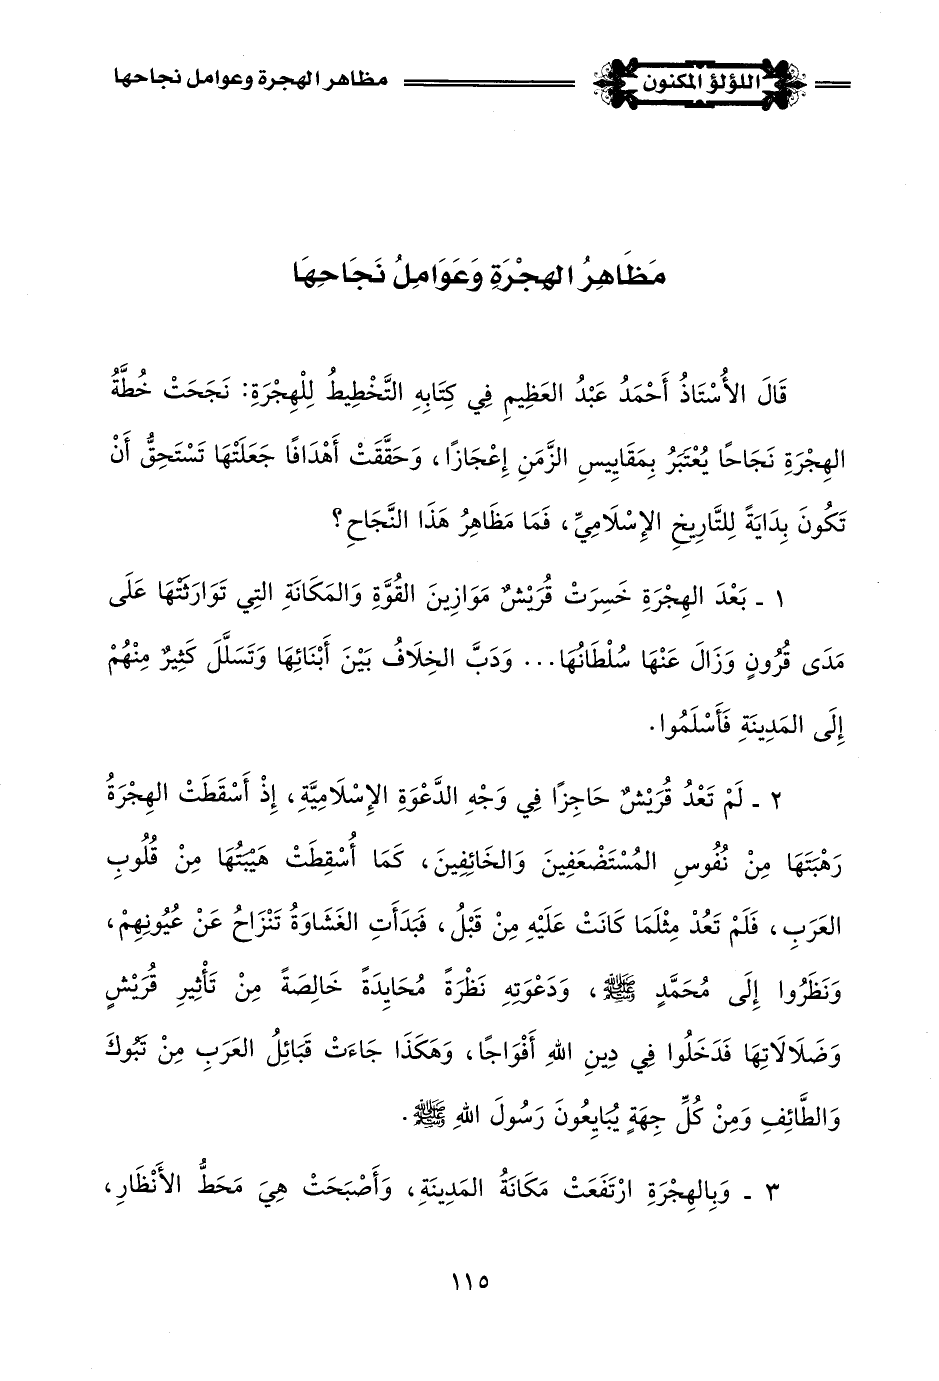 اللؤلؤ المكنون مظاهر الهجرة وعوامل نجاحها
مَظَاهِرُ الهِجْرَةِ وَعَوَامِلُ نَجَاحِهَا
قَالَ الأُسْتَاذُ أَحْمَدُ عَبْدُ العَظِيمِ فِي كِتَابِهِ التَّخْطِيطُ لِلْهِجْرَةِ: نَجَحَتْ خُطَّةُ
الهِجْرَةِ نَجَاحًا يُعْتَبَرُ بِمَقَايِيسِ الزَّمَنِ إِعْجَازًا، وَحَقَّقَتْ أَهْدَافًا جَعَلَتْهَا تَسْتَحِقُّ أَنْ
تَكُونَ بِدَايَةً لِلتَّارِيخِ الإِسْلَامِيِّ، فَمَا مَظَاهِرُ هَذَا النَّجَاحِ؟
١ ـ بَعْدَ الهِجْرَةِ خَسِرَتْ قُرَيْشٌ مَوَازِينَ القُوَّةِ وَالمَكَانَةِ التِي تَوَارَثَتْهَا عَلَى
مَدَى قُرُونٍ وَزَالَ عَنْهَا سُلْطَانُهَا... وَدَبَّ الخِلَافُ بَيْنَ أَبْنَائِهَا وَتَسَلَّلَ كَثِيرٌ مِنْهُمْ
إِلَى المَدِينَةِ فَأَسْلَمُوا.
٢ ـ لَمْ تَعُدْ قُرَيْشٌ حَاجِزًا فِي وَجْهِ الدَّعْوَةِ الإِسْلَامِيَّةِ، إِذْ أَسْقَطَتْ الهِجْرَةُ
رَهْبَتَهَا مِنْ نُفُوسِ المُسْتَضْعَفِينَ وَالخَائِفِينَ، كَمَا أُسْقِطَتْ هَيْبَتُهَا مِنْ قُلُوبِ
العَرَبِ، فَلَمْ تَعُدْ مِثْلَمَا كَانَتْ عَلَيْهِ مِنْ قَبْلُ، فَبَدَأَتِ الغَشَاوَةُ تَنْزَاحُ عَنْ عُيُونِهِمْ،
وَنَظَرُوا إِلَى مُحَمَّدٍ ﷺ، وَدَعْوَتِهِ نَظْرَةً مُحَايِدَةً خَالِصَةً مِنْ تَأْثِيرِ قُرَيْشٍ
وَضَلَالَاتِهَا فَدَخَلُوا فِي دِينِ اللهِ أَفْوَاجًا، وَهَكَذَا جَاءَتْ قَبَائِلُ العَرَبِ مِنْ تَبُوكَ
وَالطَّائِفِ وَمِنْ كُلِّ جِهَةٍ يُبَايِعُونَ رَسُولَ اللهِ ﷺ.
٣ ـ وَبِالهِجْرَةِ ارْتَفَعَتْ مَكَانَةُ المَدِينَةِ، وَأَصْبَحَتْ هِيَ مَحَطُّ الأَنْظَارِ،
١١٥